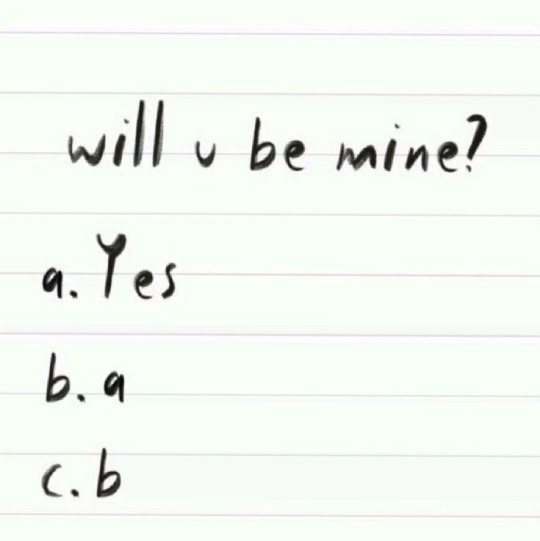 will u be mine?
a. Yes
b. a
c. b